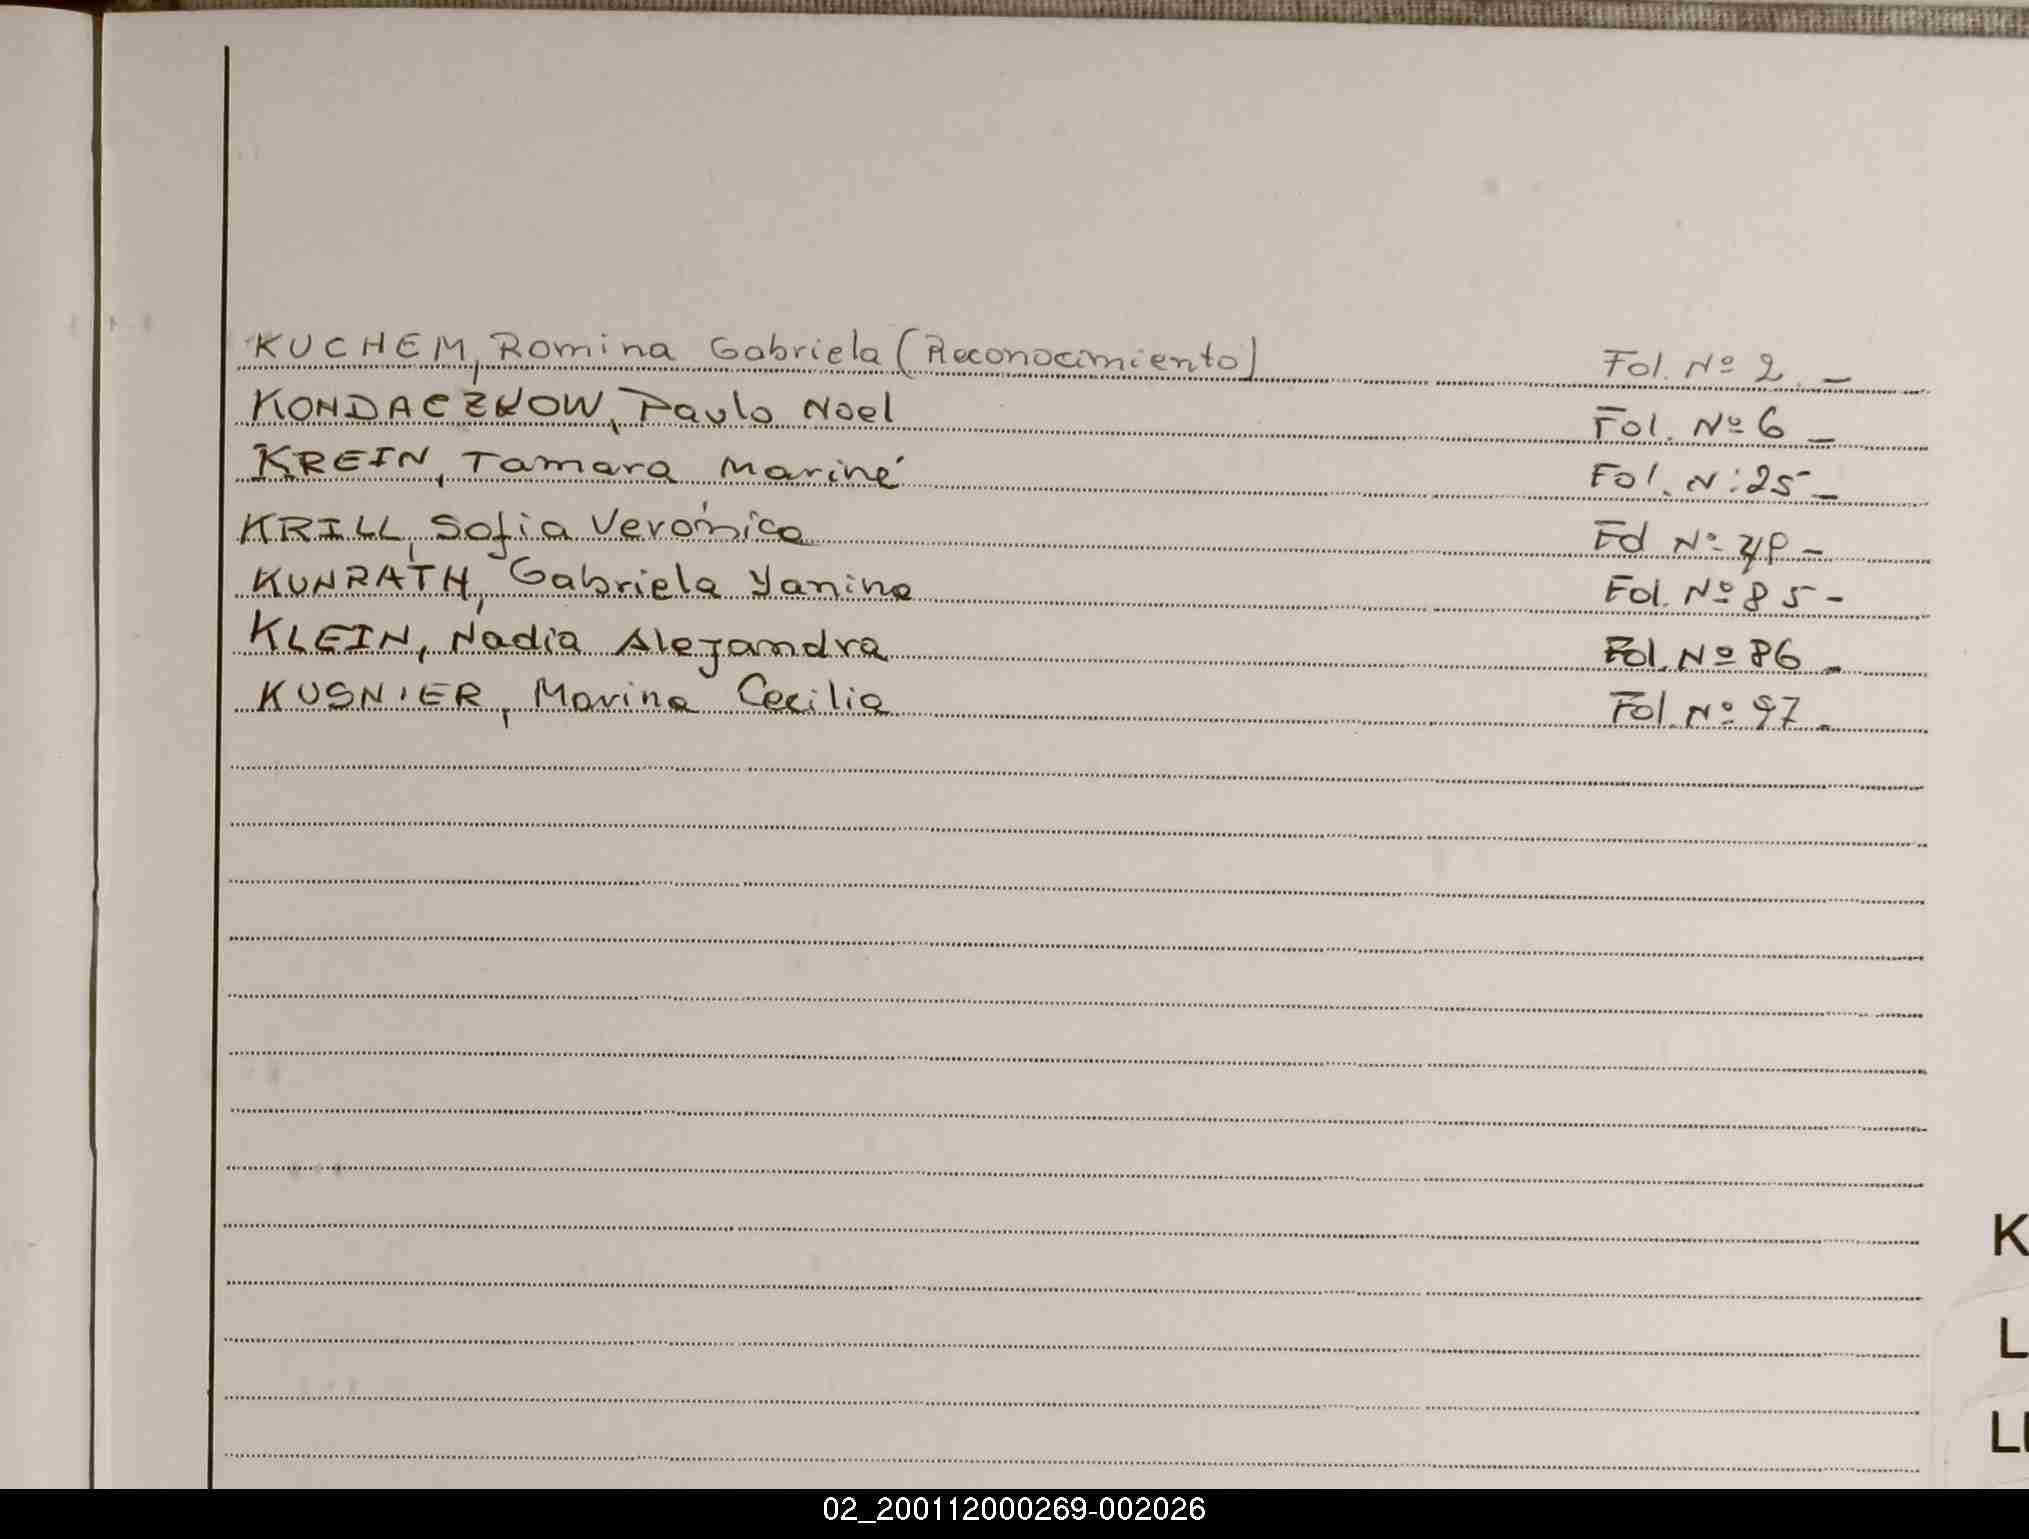 KUCHEM, Romina Gabriela (Reconocimiento) Fol. Nº 2. -
KONDACZKOW, Paulo Noel Fol. Nº 6 -
KREIN, Tamara Mariné Fol. N: 25 -
KRILL, Sofia Verónica Fol Nº -
KUNRATH, Gabriela Yanina Fol. Nº 85 -
KLEIN, Nadia Alejandra Fol. Nº 86 -
KUSNIER, Marina Cecilia Fol. Nº 97 -
K
L
02_200112000269-002026